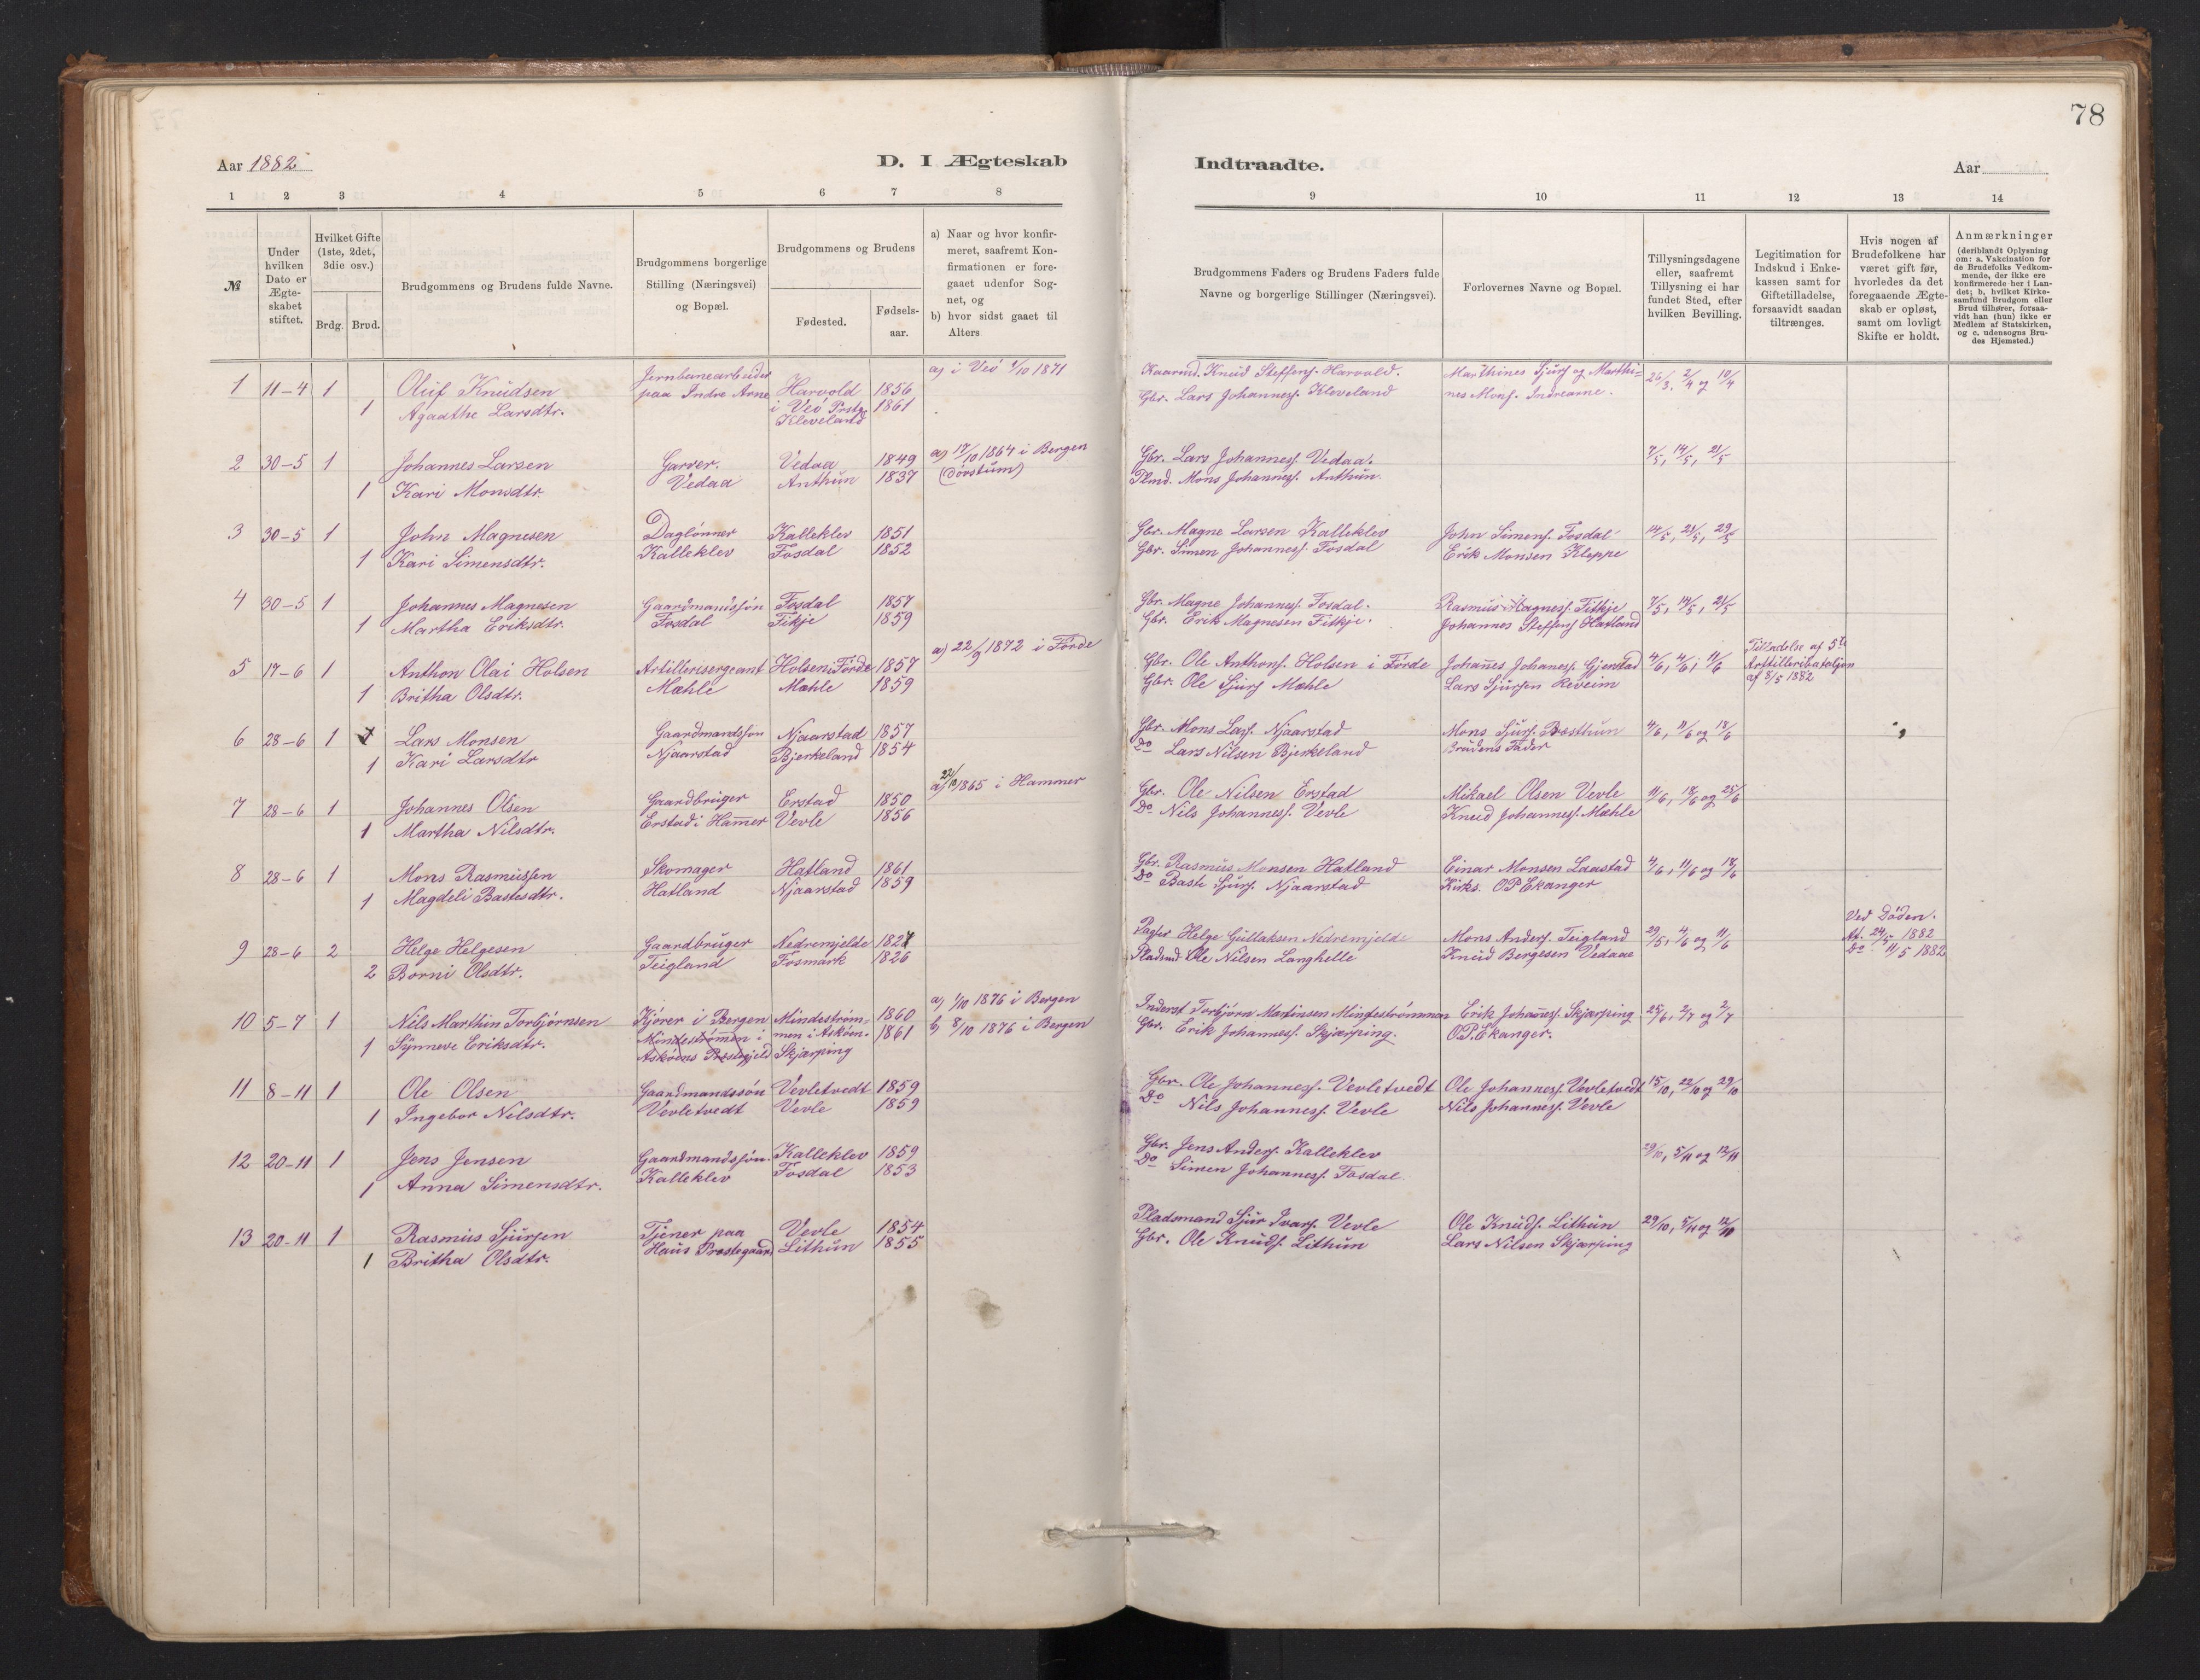 78
Aar 1882
D. I Ægteskab
Indtraadte.
Aar
1 2 3 4 5 6 7 8
9 10 11 12 13 14
№
Under hvilken Dato er Ægteskabet stiftet.
Hvilket Gifte (1ste, 2det, 3die osv.)
Brdg. Brud.
Brudgommens og Brudens fulde Navne.
Brudgommens borgerlige Stilling (Næringsvei) og Bopæl.
Brudgommens og Brudens
Fødested.
Fødselsaar.
a) Naar og hvor konfirmeret, saafremt Konfirmationen er foregaaet udenfor Sognet, og
b) hvor sidst gaaet til Alters
Brudgommens Faders og Brudens Faders fulde Navne og borgerlige Stillinger (Næringsvei).
Forlovernes Navne og Bopæl.
Tillysningsdagene eller, saafremt Tillysning ei har fundet Sted, efter hvilken Bevilling.
Legitimation for Indskud i Enkekassen samt for Giftetilladelse, forsaavidt saadan tiltrænges.
Hvis nogen af Brudefolkene har været gift før, hvorledes da det foregaaende Ægteskab er opløst, samt om lovligt Skifte er holdt.
Anmærkninger
(deriblandt Oplysning om: a. Vakcination for de Brudefolks Vedkommende, der ikke ere konfirmerede her i Landet; b, hvilket Kirkesamfund Brudgom eller Brud tilhører, forsaavidt han (hun) ikke er Medlem af Statskirken, og c. udensogns Brudes Hjemsted.)
1 11-4 1 Oluf Knudsen Jernbanearbeider Harvold 1856 a) i Veö 1/10 1871 Knud Steffens. Harvold. Marthines Sjurs. og Marthi- 26/3, 2/4 og 10/4
1 Agaathe Larsdtr. paa Indre Arne i Veö Prstg. 1861 Gbr. Lars Johanness. Kleveland nes Mons. Indrearne.
Kleveland
2 30-5 1 Johannes Larsen Garver. Vedaa 1849 a) 17/10 1864 i Bergen Gbr. Lars Johanness. Vedaa. 7/5, 14/5, 21/5
1 Kari Monsdtr. Vedaa Anthun 1837 Plmd. Mons Johanness. Anthun.
3 30-5 1 John Magnesen Daglönner Kalleklev 1851 Gbr. Magne Larsen Kalleklev John Simens. Fosdal 14/5, 21/5, 29/5
1 Kari Simensdtr. Kalleklev Fosdal 1852 Gbr. Simen Johanness. Fosdal Erik Monsen Kleppe
4 30-5 1 Johannes Magnesen Gaardmandssön Fosdal 1857 Gbr. Magne Johanness. Fosdal. Rasmus Magness. Fitkje 7/5, 14/5, 21/5
1 Martha Eriksdtr. Fosdal Fikje 1859 Gbr. Erik Magnesen Fitkje. Johannes Steffens. Hatland
5 17-6 1 Anthon Olai Holsen Artillerisergeant Holsen i Förde 1857 a) 22/9 1872 i Förde Gbr. Ole Anthons. Holsen i Förde Johañes Johaness. Gjerstad 4/6, 4/6, 11/6 Tilladelse af 5te Artilleribataljon af 8/5 1882
1 Britha Olsdtr. Mæhle Mæhle 1859 Gbr. Ole Sjurs. Mæhle Lars Sjursen Reveim
6 28-6 1 Lars Monsen Gaardmandssøn Njaarstad 1857 Gbr. Mons Lars. Njaarstad Mons Sjurs. 4/6, 11/6 og 18/6
1 Kari Larsdtr Njaarstad Bjerkeland 1854 Do Lars Nilsen Bjerkeland Brudens Fader
7 28-6 1 Johannes Olsen Gaardbruger Erstad 1850 a) 22/10 1865 i Hammer Gbr. Ole Nilsen Erstad Mikael Olsen Vevle 11/6, 18/6 og 25/6
1 Martha Nilsdtr. Erstad i Hamer Vevle 1856 Do Nils Johanness. Vevle Knud Johanness. Mæhle
8 28-6 1 Mons Rasmussen Skomager Hatland 1861 Gbr. Rasmus Monsen Hatland Einar Monsen Laastad 4/6, 11/6 og 18/6
1 Magdeli Bastesdtr. Hatland Njaarstad 1859 Do Baste Sjurs. Njaarstad Kirks. O P Ekanger
9 28-6 2 Helge Helgesen Gaardbruger Nedremjelde 1821 Helge Gullaksen Nedremjelde Mons Anders. Teigland 29/5, 4/6 og 11/6 Ved Döden. At. 24/5 1882
2 Borni Olsdtr. Teigland Fosmark 1826 Pladsmd Ole Nilsen Langhelle Knud Bergesen Vedaae Do 11/5 1882
10 5-7 1 Nils Marthin Torbjörnsen Kjörer i Bergen Mindeström- 1860 a) 1/10 1876 i Bergen Inderst Torbjörn Martinsen Mindeströmmen Erik Johañess. Skjærping 25/6, 2/7 og 2/7
1 Synneve Eriksdtr. Mindeströmen i men i Asköen. 1861 b) 8/10 1876 i Bergen Gbr. Erik Johaness. Skjærping. O P. Ekanger.
Asköens Præstegjeld Skjærping
11 8-11 1 Ole Olsen Gaardmandssön Vevletvedt 1859 Gbr. Ole Johanness. Vevletvedt Ole Johanness. Vevletvedt 15/10, 22/10 og 29/10
1 Ingebor Nilsdtr. Vevletvedt Vevle 1859 Do Nils Johanness. Vevle Nils Johanness. Vevle
12 20-11 1 Jens Jensen Gaardmandssön. Kalleklev 1859 Gbr. Jens Anders. Kalleklev 29/10, 5/11 og 12/11
1 Anna Simensdtr. Kalleklev Fosdal 1853 Do Simen Johanness. Fosdal.
13 20-11 1 Rasmus Sjursen Tjener paa Vevle 1854 Pladsmand Sjur Ivars. Vevle Ole Knuds. Lithun 29/10, 5/11 og 12/11
1 Britha Olsdtr. Haus Prestegaard Lithun 1855 Gbr. Ole Knuds. Lithun Lars Nilsen Skjærping